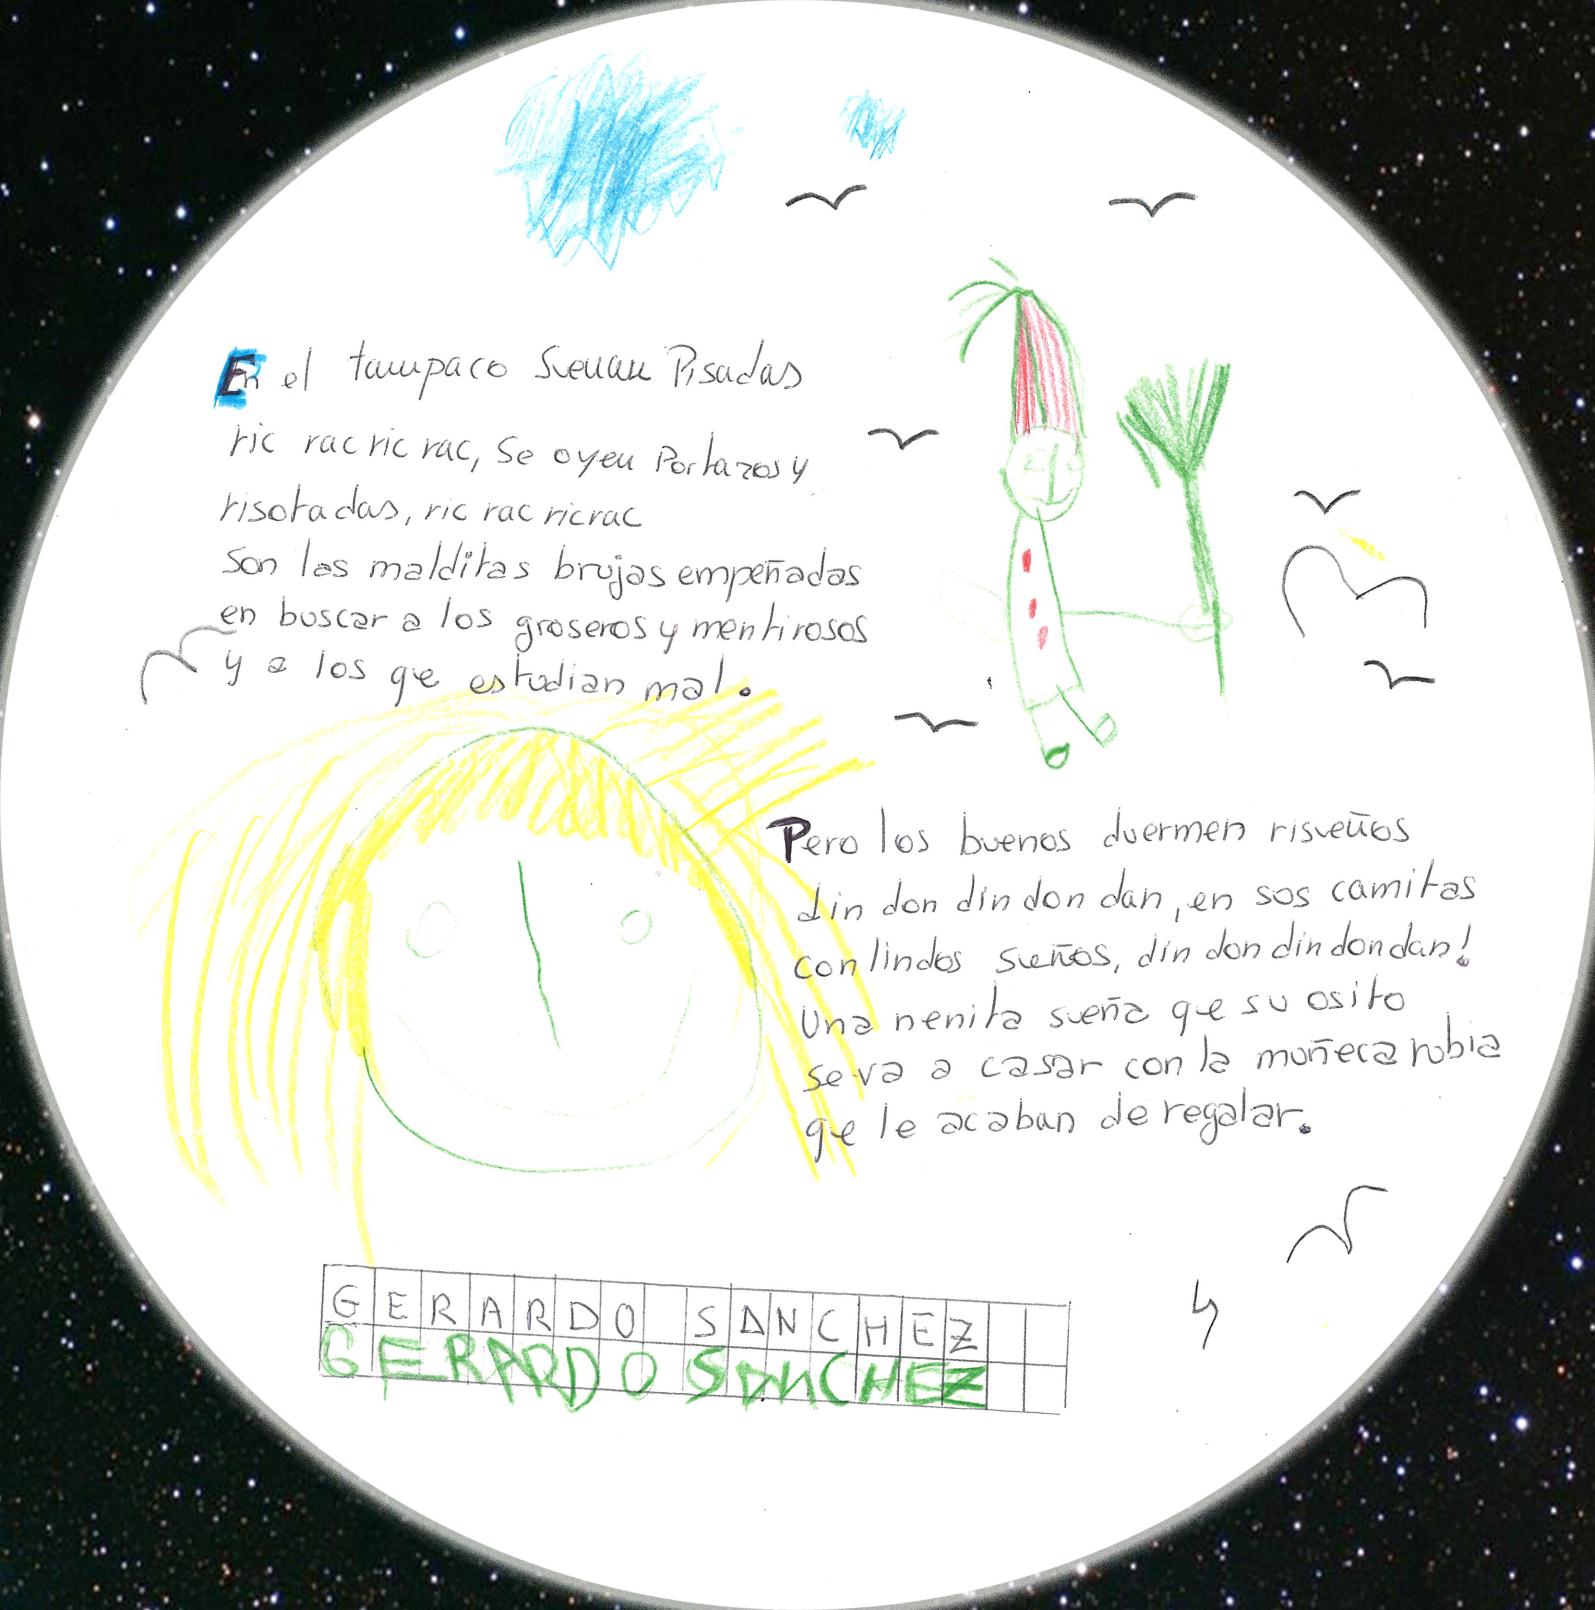 En el tampaco suenan Pisadas
ric rac ric rac, se oyen Portazos y
risotadas, ric rac ric rac
Son las malditas brujas empeñadas
en buscar a los groseros y mentirosos
y a los qe estudian mal.
Pero los buenos duermen risueños
din don din don dan, en sos camitas
con lindos sueños, din don din don dan!
Una nenita sueña qe su osito
se va a casar con la muñeca rubia
qe le acaban de regalar.
GERARDO SANCHEZ
GERARDO SANCHEZ